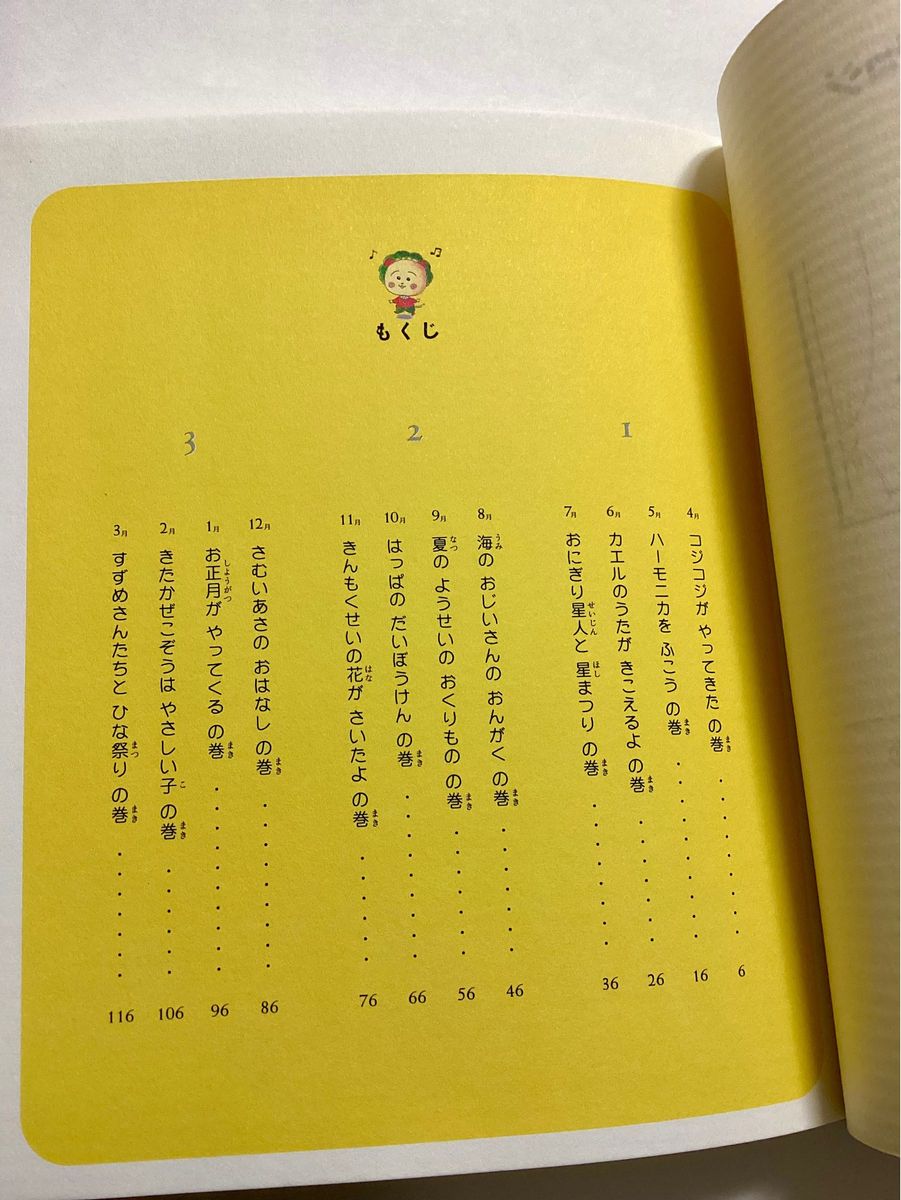 もくじ
1
4月 コジコジが やってきた の巻 ・・・・・・・ 6
5月 ハーモニカを ふこう の巻 ・・・・・・・・ 16
6月 カエルのうたが きこえるよ の巻 ・・・・・・ 26
7月 おにぎり星人と 星まつり の巻 ・・・・・・・ 36
2
8月 海の おじいさんの おんがく の巻 ・・・・・・ 46
9月 夏の ようせいの おくりもの の巻 ・・・・・・ 56
10月 はっぱの だいぼうけん の巻 ・・・・・・・ 66
11月 きんもくせいの花が さいたよ の巻 ・・・・・ 76
3
12月 さむいあさの おはなし の巻 ・・・・・・・・ 86
1月 お正月が やってくる の巻 ・・・・・・・・ 96
2月 きたかぜこぞうは やさしい子 の巻 ・・・・・・ 106
3月 すずめさんたちと ひな祭り の巻 ・・・・・・ 116